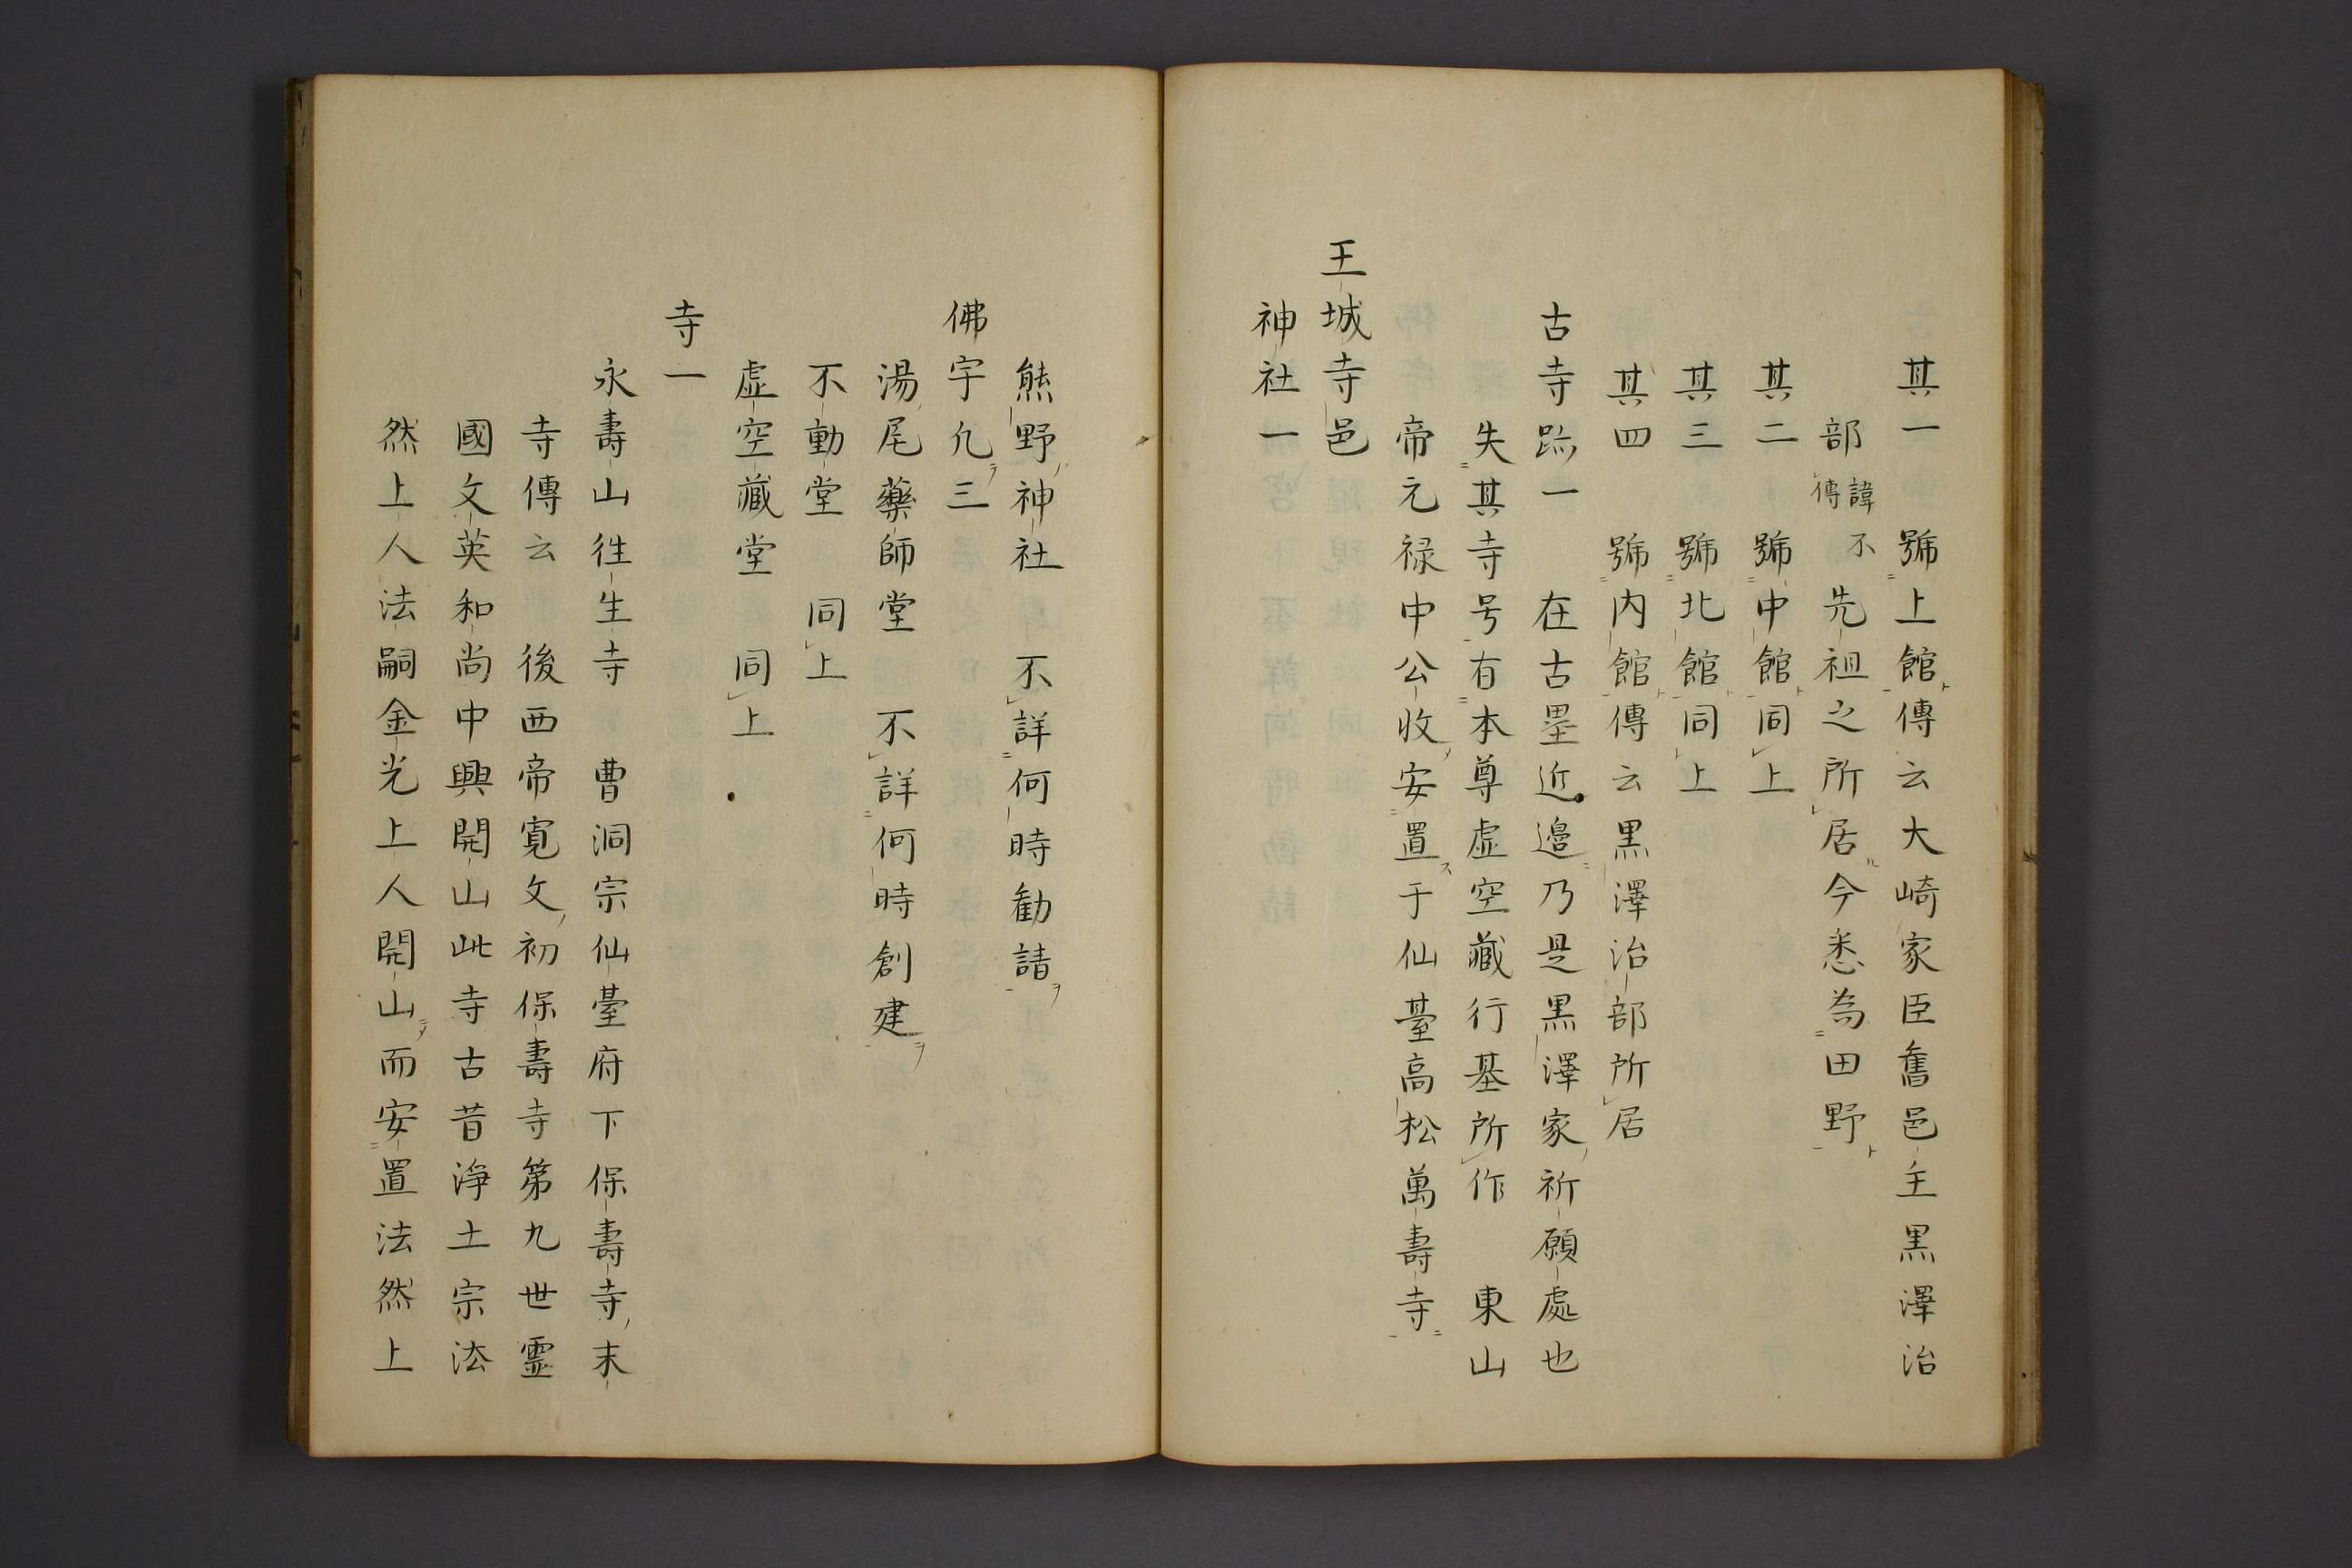 其一　號上館傳云大崎家臣舊邑主黒澤治
部諱不傳先祖之所居今悉為田野
其二　號中館同上
其三　號北館同上
其四　號内館傳云黒澤治部所居
古寺跡一　在古塁近邊乃是黒澤家祈願處也
失其寺号有本尊虚空藏行基所作　東山
帝元禄中公收安置于仙臺高松萬壽寺
王城寺邑
神社一
熊野神社　不詳何時勧請
佛宇凢三
湯尾藥師堂　不詳何時創建
不動堂　同上
虚空藏堂　同上
寺一
永壽山徃生寺　曹洞宗仙臺府下保壽寺末
寺傳云　後西帝寛文初保壽寺第九世霊
國文英和尚中興開山此寺古昔浄土宗法
然上人法嗣金光上人開山而安置法然上